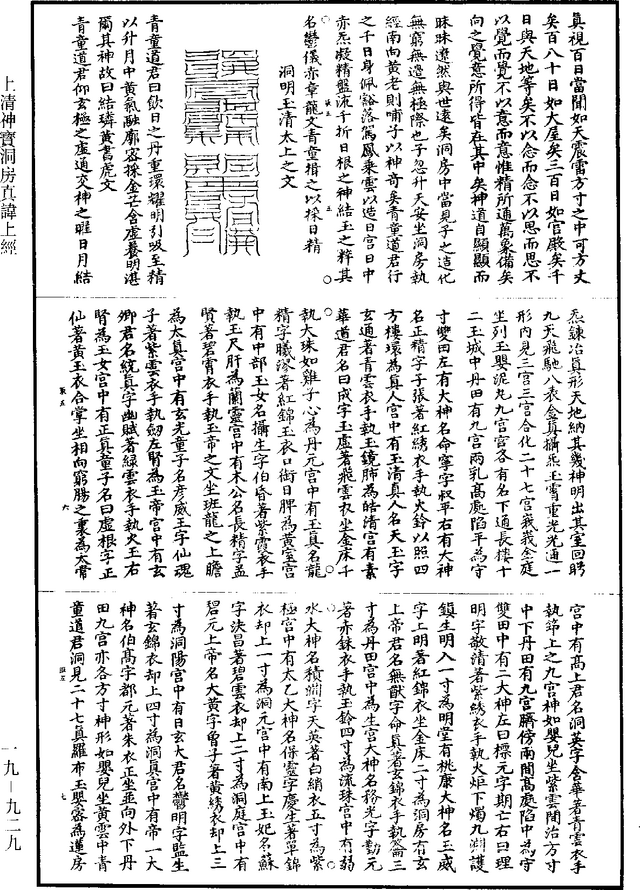 上清神寶洞房真諱上經
一九—九二九
真視百日當聞如天震雷方寸之中可方丈
矣百八十日如大屋矣三百日如官殿矣千
日與天地等矣不以念而念不以思而思不
以覺而覺不以意而意惟精所通萬象備矣
向之覺意所得皆在其中矣神道自顯顯而
昧昧遼然與世遠矣洞房中當見子之造化
無窮無邊無極際也子忽升天安坐洞房執
經南向黃老則嘯子以神奇矣青童道君行
之千日身佩谿落駕鳳乘雲以造日宮日中
赤炁凝精盬流千折日根之神結玉之粹其
名鬱儀赤章龍文青童揖之以採日精
洞明玉清太上之文
青童道君曰飲日之丹重環耀明引吸至精
以升月中黃氣融廓容採金芒含虛養明湛
爾其神故曰結璘黃書虎文
青童道君仰玄極之虛通交神之曜日月結
炁鍊冶真形天地納其幾神明出其室回聘
九天飛馳八表金真攝炁玉霄重光光通一
形內見三宮三宮合化二十七宮峩峩金庭
坐列玉嬰泥丸九宮宮各有名下通長樓十
二玉城中丹田有九宮兩乳高處陷平為守
寸雙田左有大神名命寧字叔平右有大神
名正精字子張著紅綉衣手執火鈴以照四
方樓環為真人宮中有玉清真人名天玉字
玄通著青雲衣手執玉鏡肺為皓清宮有素
華道君名曰成字玉虛著飛雲衣坐金床千
執大珠如雞子心為丹元宮中有玉真名龍
精字曦渂著紅錦玉衣口銜日脾為黃室宮
中有中部玉女名攝生字伯昏著紫霞衣手
執玉尺肝為蘭靈宮中有木公名長精字孟
賢著碧霄衣手執玉帝之文坐班龍之上膽
為太真宮中有玄光童子名彥威王字仙魂
子著紫雲衣手執劒左腎為玉帝宮中有玄
卿君名統真字幽賦著綠雲衣手執火玉右
腎為玉女宮中有正真童子名曰虛根字正
仙著黃玉衣合掌坐相向窮腸之裏為太常
宮中有高上君名洞英字含華著青雲衣手
執節上之九宮神如嬰兒坐紫雲閒治方寸
中下丹田有九宮臍傍兩閒高處陷中為守
雙田中有二大神左曰標元字期亡右曰理
明字敬清著紫綉衣手執火炬下燭九淵護
鎖生明入一寸為明堂有桃康大神名玉威
字上明著紅錦衣坐金床二寸為洞房有玄
上帝君名無猷字命真著玄錦衣手執籥三
寸為丹田宮中為生宮大神名務光字勤元
著赤銖衣手執玉鈴四寸為流珠宮中有弱
水大神名積淵字天英著白綃衣五寸為紫
極宮中有太乙大神名保靈字慶生著單錦
衣却上一寸為洞元宮中有南上玉妃名蘇
字泱昌著碧雲衣却上二寸為洞庭宮中有
碧元上帝名大黃字曾子著黃綉衣却上三
寸為洞陽宮中有日玄大君名鬱明字監生
著玄錦衣却上四寸為洞真宮中有帝一大
神名伯高字都元著朱衣正坐並向外下丹
田九宮亦各方寸神形如嬰兒坐黃雲中青
童道君洞見二十七真羅布玉嬰容為蓮房